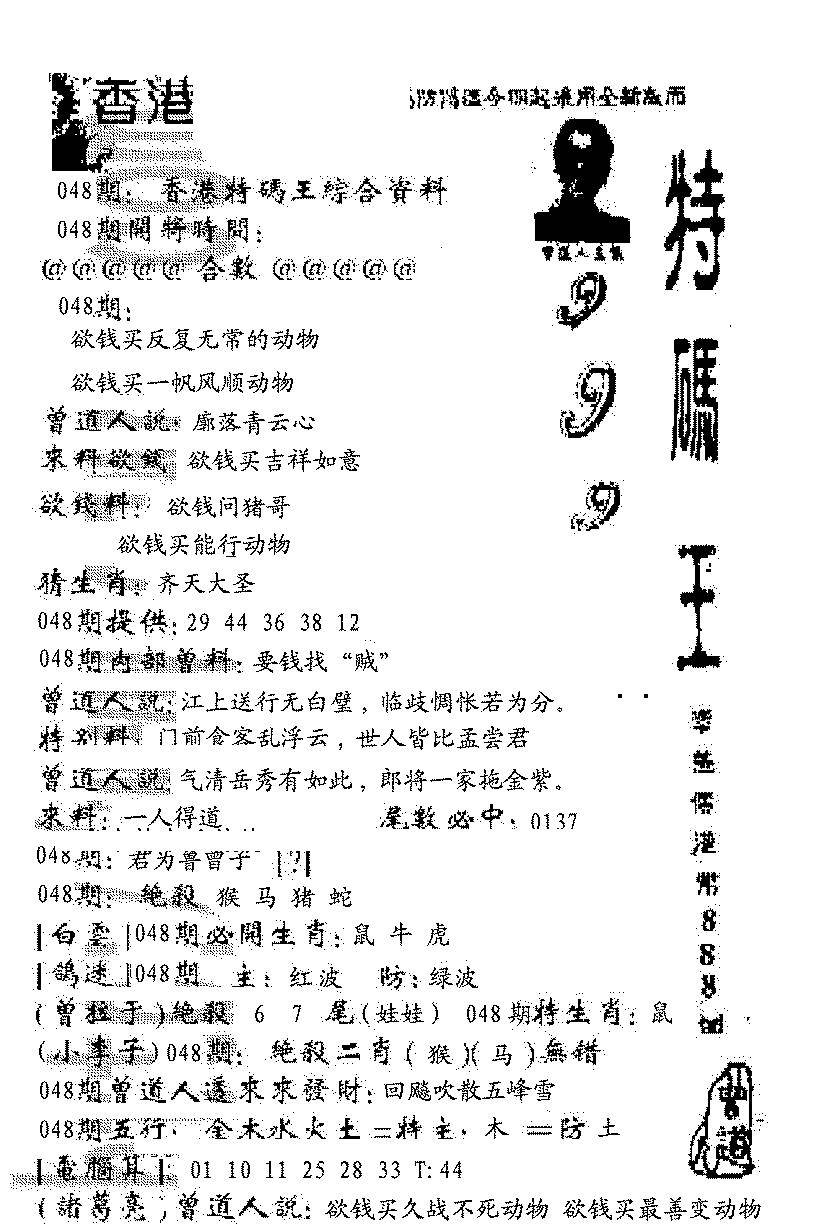 香港
防偽這今期起採用全新版面
048期: 香港特碼王綜合資料
048期開將時間:
@@@@@ 合數 @@@@@
048期:
欲钱买反复无常的动物
欲钱买一帆风顺动物
曾道人說: 廓落青云心
來料欲錢 欲钱买吉祥如意
欲錢料: 欲钱问猪哥
欲钱买能行动物
猜生肖: 齐天大圣
048期提供: 29 44 36 38 12
048期内部曾料: 要钱找“贼”
曾道人說: 江上送行无白璧，临歧惆怅若为分。
特别料: 门前食客乱浮云，世人皆比孟尝君
曾道人說 气清岳秀有如此，郎将一家拖金紫。
來料: 一人得道
尾數必中: 0137
048期: 君为鲁曾子 [?]
048期: 絶殺 猴 马 猪 蛇
[白雲]048期必開生肖: 鼠 牛 虎
[鴿迷]048期 主: 红波 防: 绿波
(曾拉于)絶殺 6 7 尾(娃娃) 048期特生肖: 鼠
(小李子)048期: 絶殺二肖(猴)(马)無错
048期曾道人透來來發財: 回飚吹散五峰雪
048期五行: 金木水火土=特主: 木 =防土
[電腦耳]: 01 10 11 25 28 33 T:44
(諸葛亮)曾道人說: 欲钱买久战不死动物 欲钱买最善变动物
曾道人
999
特碼王
港幣888
曾道人